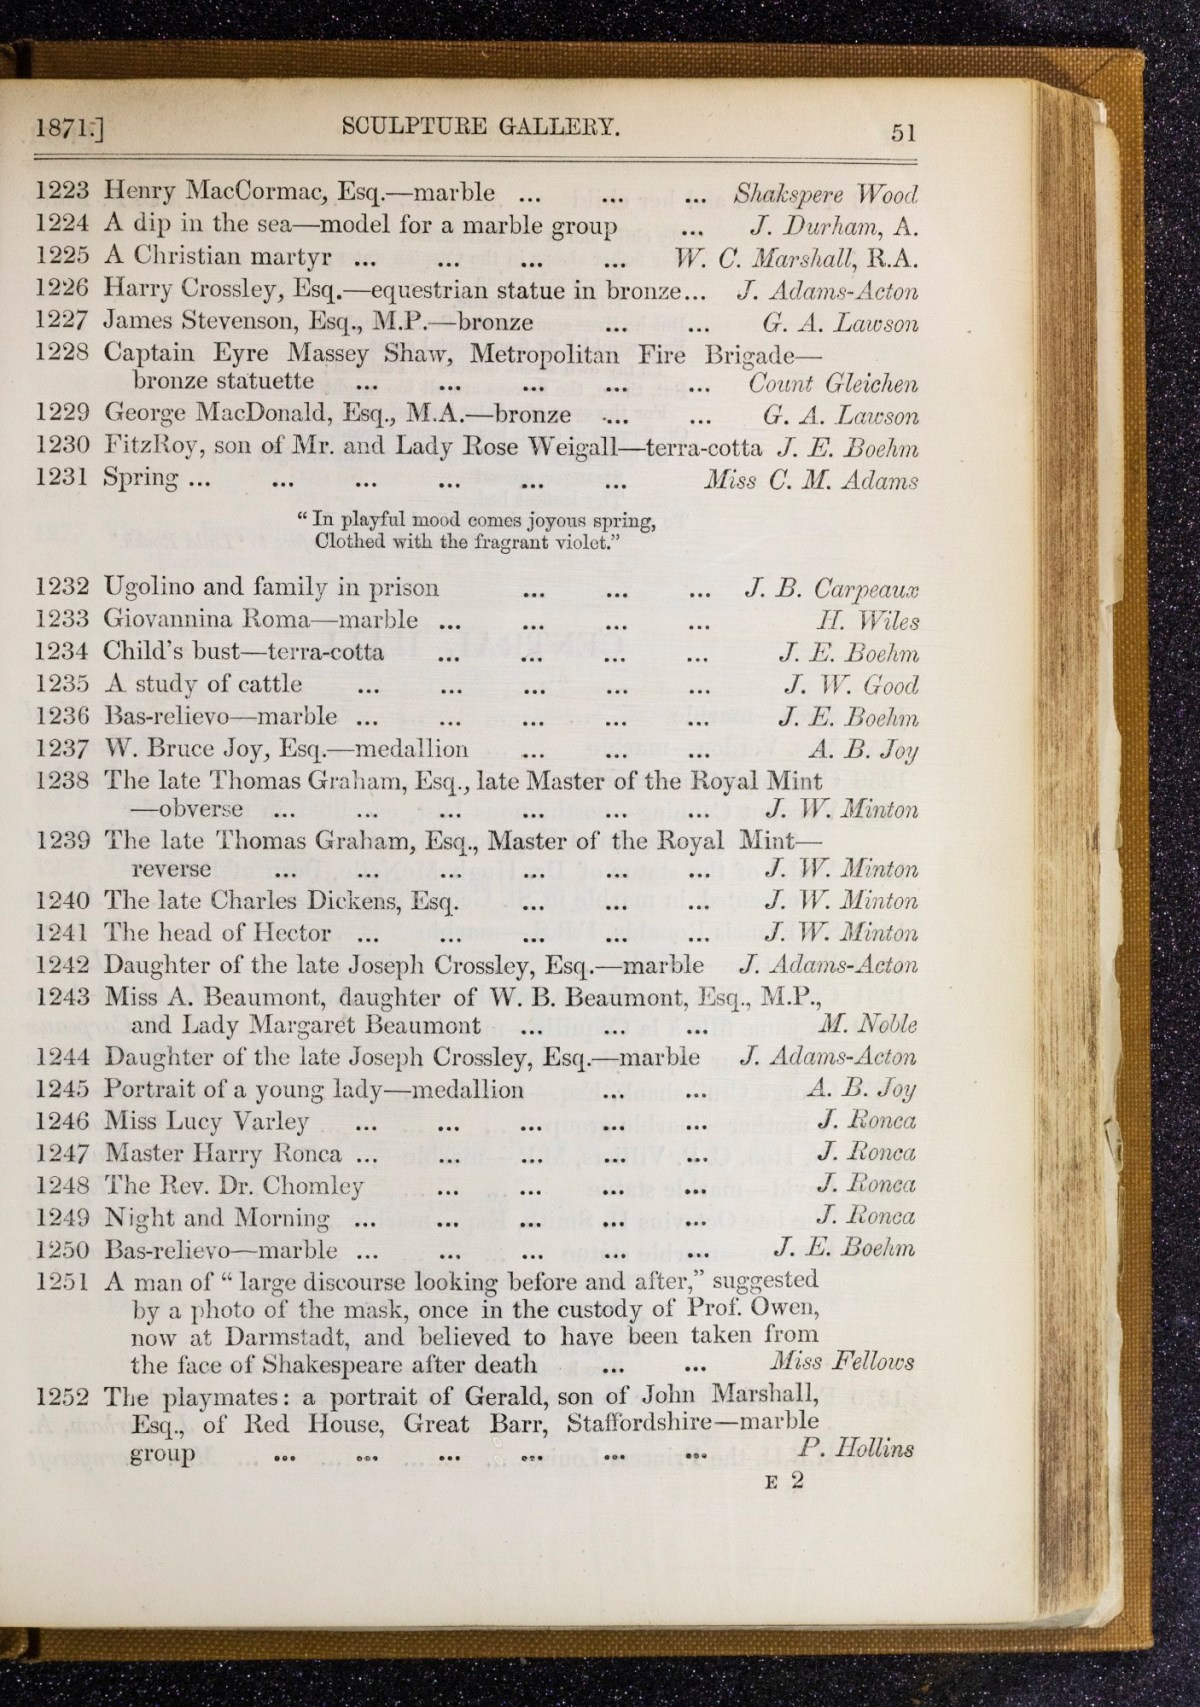 1871.] SCULPTURE GALLERY. 51
1223 Henry MacCormac, Esq.—marble ... ... ... Shakspere Wood
1224 A dip in the sea—model for a marble group ... J. Durham, A.
1225 A Christian martyr ... ... ... ... W. C. Marshall, R.A.
1226 Harry Crossley, Esq.—equestrian statue in bronze... J. Adams-Acton
1227 James Stevenson, Esq., M.P.—bronze ... ... G. A. Lawson
1228 Captain Eyre Massey Shaw, Metropolitan Fire Brigade—
bronze statuette ... ... ... ... ... Count Gleichen
1229 George MacDonald, Esq., M.A.—bronze ... ... G. A. Lawson
1230 FitzRoy, son of Mr. and Lady Rose Weigall—terra-cotta J. E. Boehm
1231 Spring ... ... ... ... ... ... Miss C. M. Adams
“ In playful mood comes joyous spring,
Clothed with the fragrant violet.”
1232 Ugolino and family in prison ... ... ... J. B. Carpeaux
1233 Giovannina Roma—marble ... ... ... ... H. Wiles
1234 Child’s bust—terra-cotta ... ... ... ... J. E. Boehm
1235 A study of cattle ... ... ... ... ... J. W. Good
1236 Bas-relievo—marble ... ... ... ... ... J. E. Boehm
1237 W. Bruce Joy, Esq.—medallion ... ... ... A. B. Joy
1238 The late Thomas Graham, Esq., late Master of the Royal Mint
—obverse ... ... ... ... ... ... J. W. Minton
1239 The late Thomas Graham, Esq., Master of the Royal Mint—
reverse ... ... ... ... ... ... J. W. Minton
1240 The late Charles Dickens, Esq. ... ... ... J. W. Minton
1241 The head of Hector ... ... ... ... ... J. W. Minton
1242 Daughter of the late Joseph Crossley, Esq.—marble J. Adams-Acton
1243 Miss A. Beaumont, daughter of W. B. Beaumont, Esq., M.P.,
and Lady Margaret Beaumont ... ... ... M. Noble
1244 Daughter of the late Joseph Crossley, Esq.—marble J. Adams-Acton
1245 Portrait of a young lady—medallion ... ... A. B. Joy
1246 Miss Lucy Varley ... ... ... ... ... J. Ronca
1247 Master Harry Ronca ... ... ... ... ... J. Ronca
1248 The Rev. Dr. Chomley ... ... ... ... J. Ronca
1249 Night and Morning ... ... ... ... ... J. Ronca
1250 Bas-relievo—marble ... ... ... ... ... J. E. Boehm
1251 A man of “ large discourse looking before and after,” suggested
by a photo of the mask, once in the custody of Prof. Owen,
now at Darmstadt, and believed to have been taken from
the face of Shakespeare after death ... ... Miss Fellows
1252 The playmates: a portrait of Gerald, son of John Marshall,
Esq., of Red House, Great Barr, Staffordshire—marble
group ... ... ... ... ... ... P. Hollins
E 2